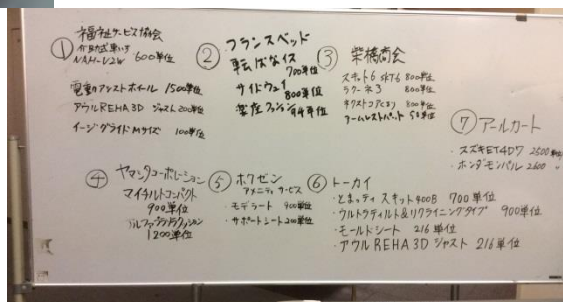 ① 福祉サービス協会
介助式車いす
NAH-L2W 600単位
電動アシストホイール 1500単位
アウルREHA 3D ジャスト 200単位
イージーグライドMサイズ 100単位
② フランスベッド
転ばなイス
700単位
サイドウェイ
800単位
③ 栄橋商会
スキット6 SKT6 800単位
ラクーネ3 800単位
ネクストコア 800単位
アームレストパット 50単位
④ ヤマシタコーポレーション
マイチルトコンパクト
900単位
1200単位
⑤ ホクゼン
アメニティサービス
・モデラート 900単位
・サポートシート 200単位
⑥ トーカイ
・とまっティ スキット400B 700単位
・ウルトラティルト&リクライニングタイプ 900単位
・モールドシート 216単位
・アウル REHA 3D ジャスト 216単位
⑦ アールカート
・スズキET4D7 2500単位
・ホンダモンパル 2600 〃